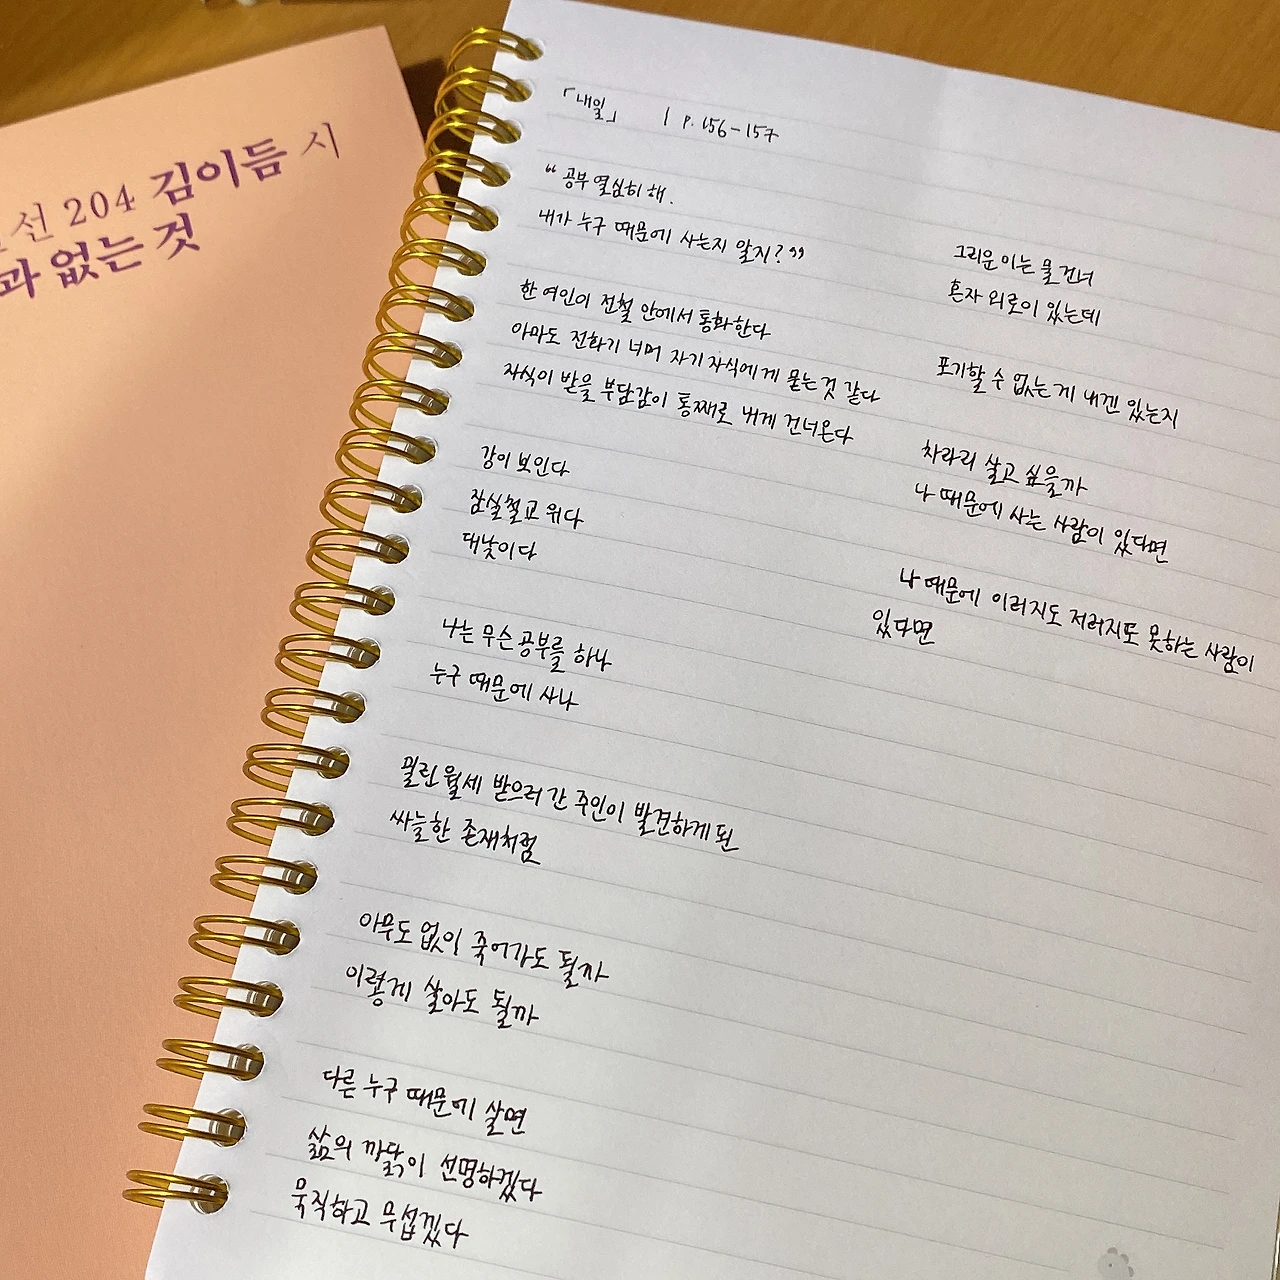 선 204 김이듬 시
과 없는 것
「내일」 | p. 156-157
“공부 열심히 해.
내가 누구 때문에 사는지 알지?”
한 여인이 전철 안에서 통화한다
아마도 전화기 너머 자기 자식에게 묻는 것 같다
자식이 받을 부담감이 통째로 내게 건너온다
강이 보인다
잠실철교 위다
대낮이다
나는 무슨 공부를 하나
누구 때문에 사나
밀린 월세 받으러 간 주인이 발견하게 된
싸늘한 존재처럼
아무도 없이 죽어가도 될까
이렇게 살아도 될까
다른 누구 때문에 살면
삶의 까닭이 선명하겠다
묵직하고 무섭겠다
그리운 이는 물 건너
혼자 외로이 있는데
포기할 수 없는 게 내겐 있는지
차라리 살고 싶을까
나 때문에 사는 사람이 있다면
나 때문에 이러지도 저러지도 못하는 사람이
있다면